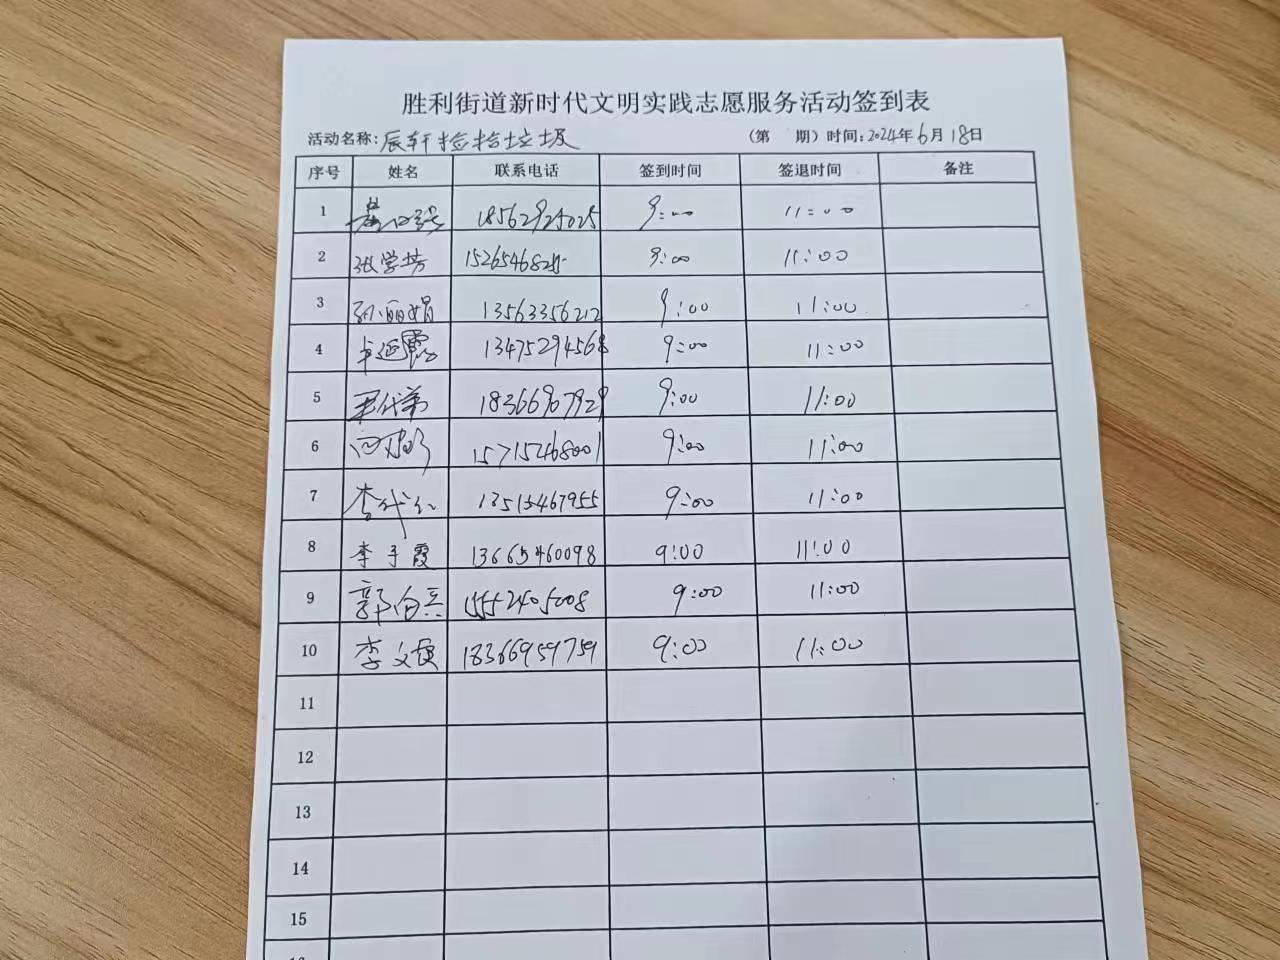 胜利街道新时代文明实践志愿服务活动签到表
活动名称:辰轩捡拾垃圾 (第 期) 时间:2024年6月18日
序号 姓名 联系电话 签到时间 签退时间 备注
1 18562925025 9:00 11:00
2 张学芳 9:00 11:00
3 孙丽娟 13563356212 9:00 11:00
4 13475294568 9:00 11:00
5 18366907929 9:00 11:00
6 15715468001 9:00 11:00
7 李代红 13515467955 9:00 11:00
8 李于霞 13665460098 9:00 11:00
9 郭向兵 15552405008 9:00 11:00
10 李文霞 18366959759 9:00 11:00
11
12
13
14
15